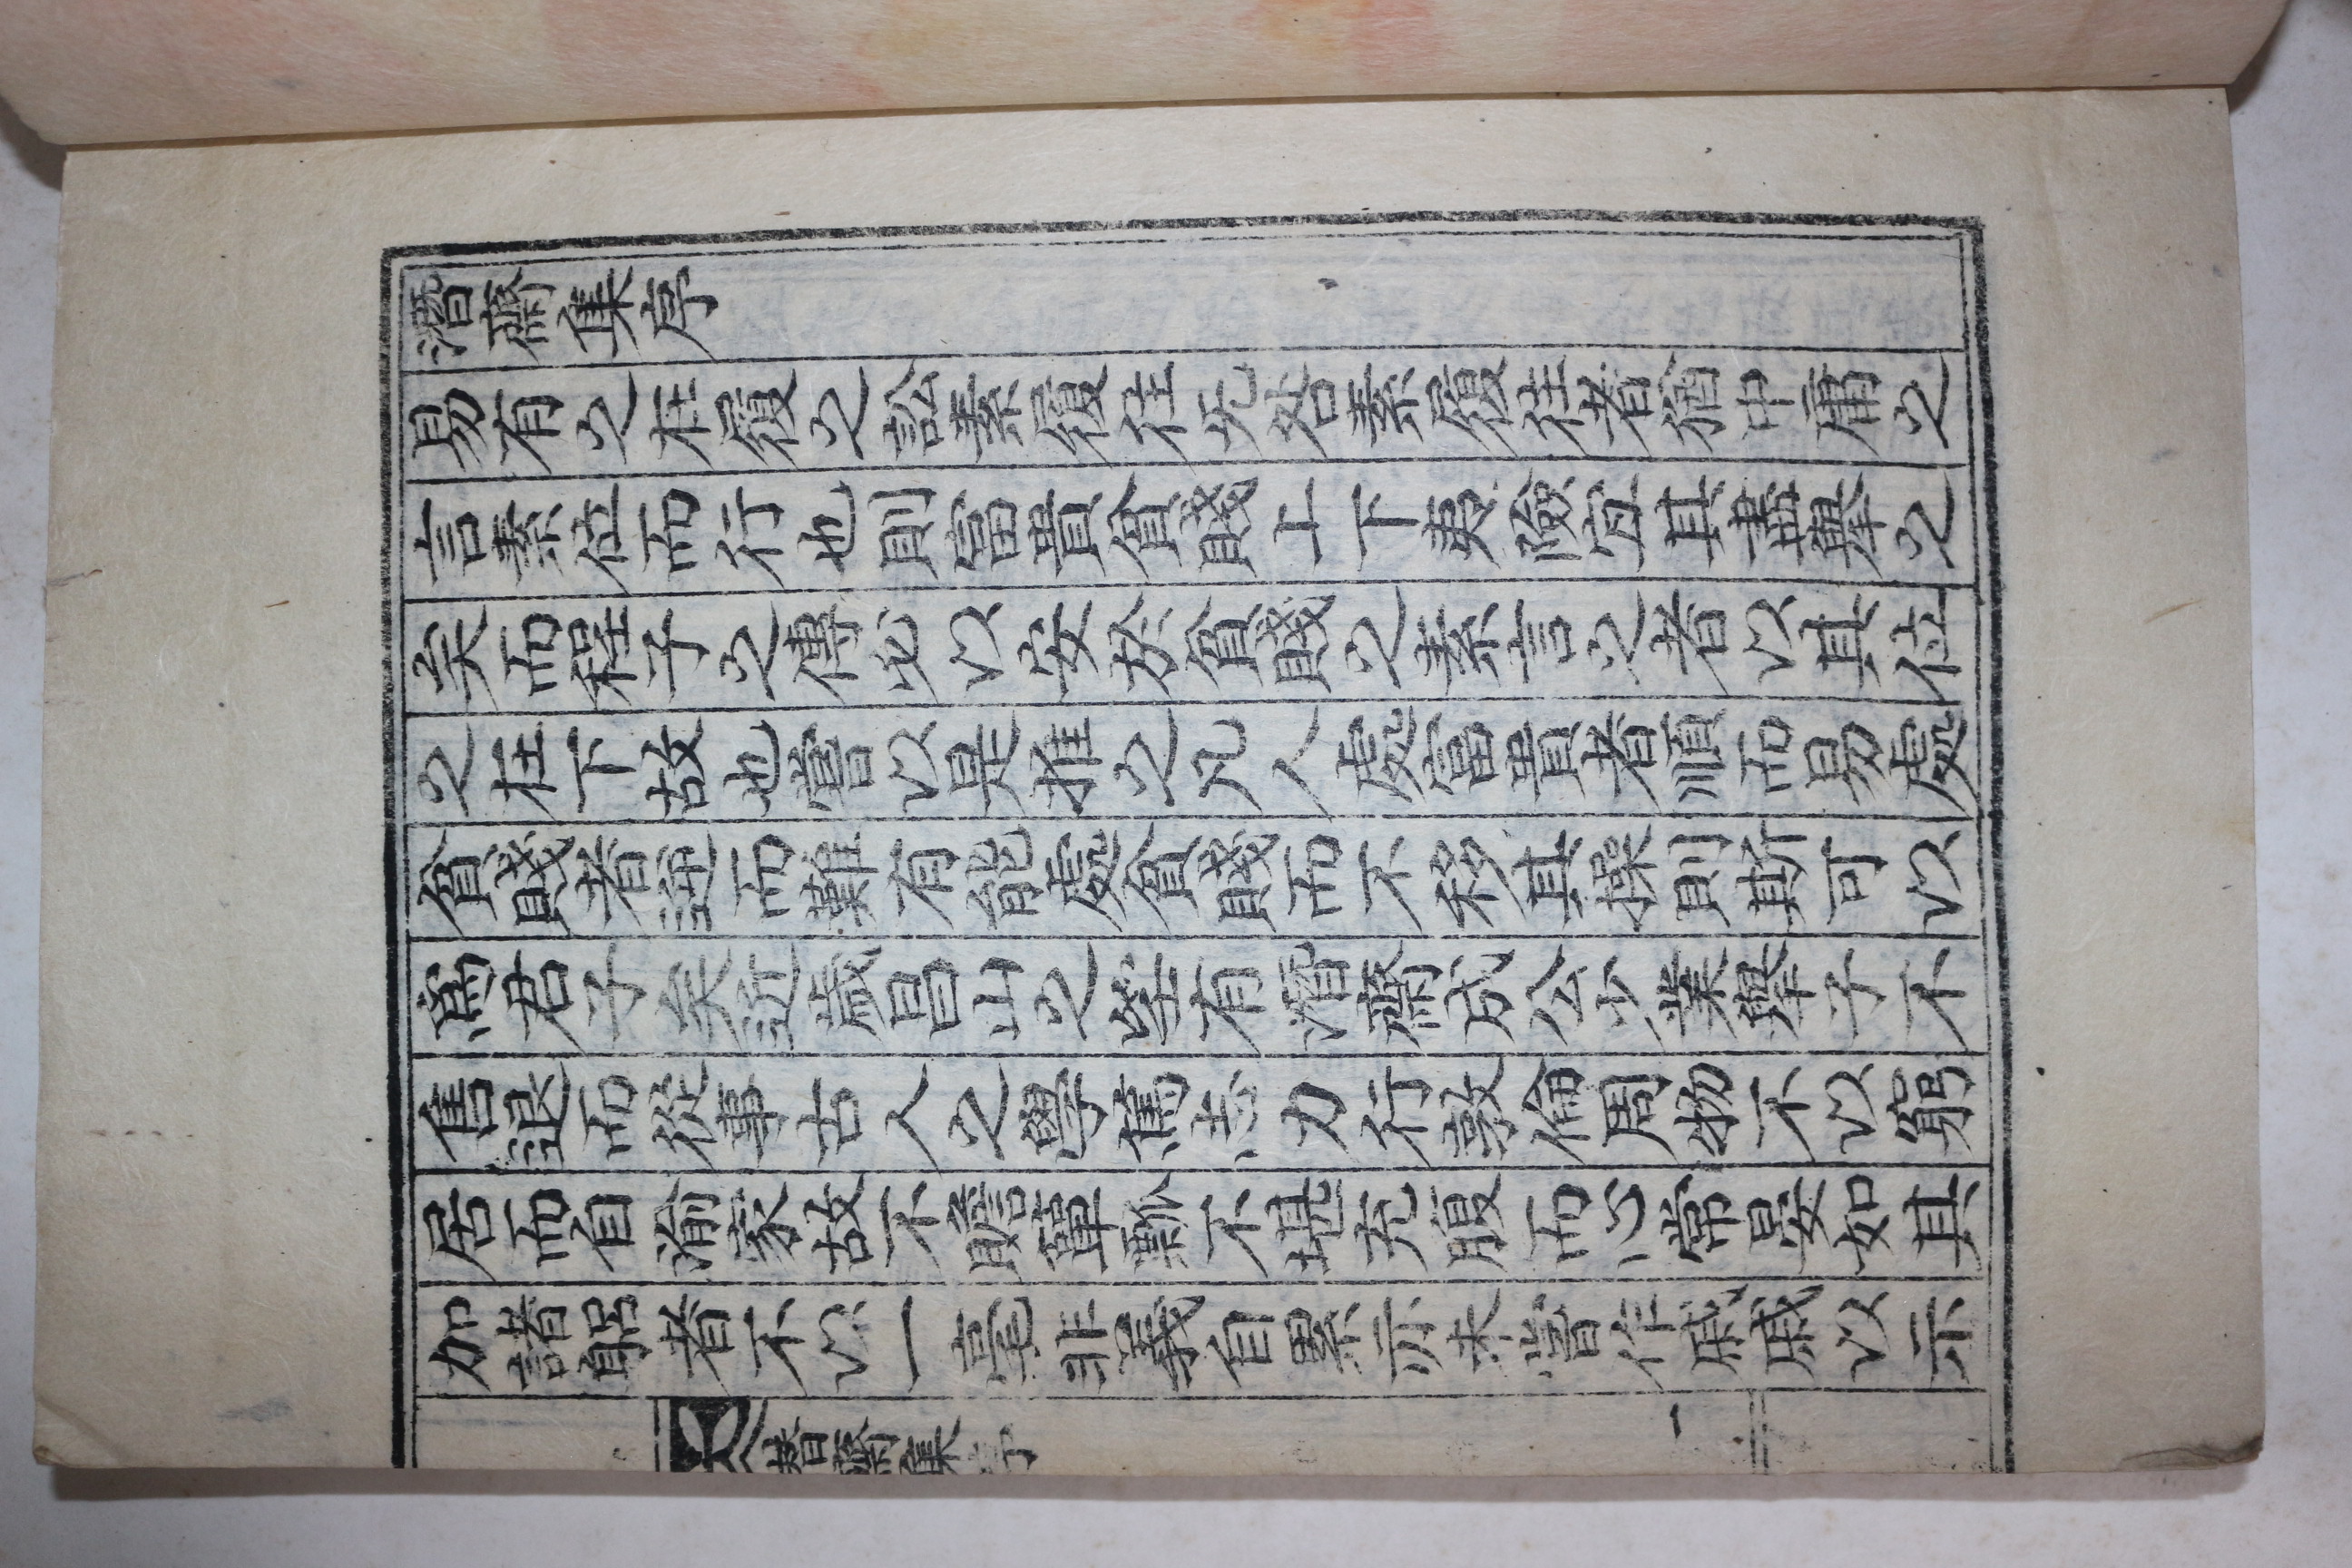 潛齋集序
易有之在履之訟素履往无咎素履往者猶中庸之
言素位而行也則富貴貧賤上下夷險宜其盡擧之
矣而程子之傳必以安於貧賤之素言之者以其位
之在下故也嘗以是推之凡人處富貴者順而易處
貧賤者逆而難有能處貧賤而不移其操則斯可以
爲君子矣近歲昌山之有潛齋成公少業擧子不
售退而從事古人之學篤志力行敦倫周物不以窮
居而自渝家故不贍簞瓢不堪充腹而心常晏如其
加諸躬者不以一毫非義自累亦未嘗作戚戚以示
潛齋集序 一